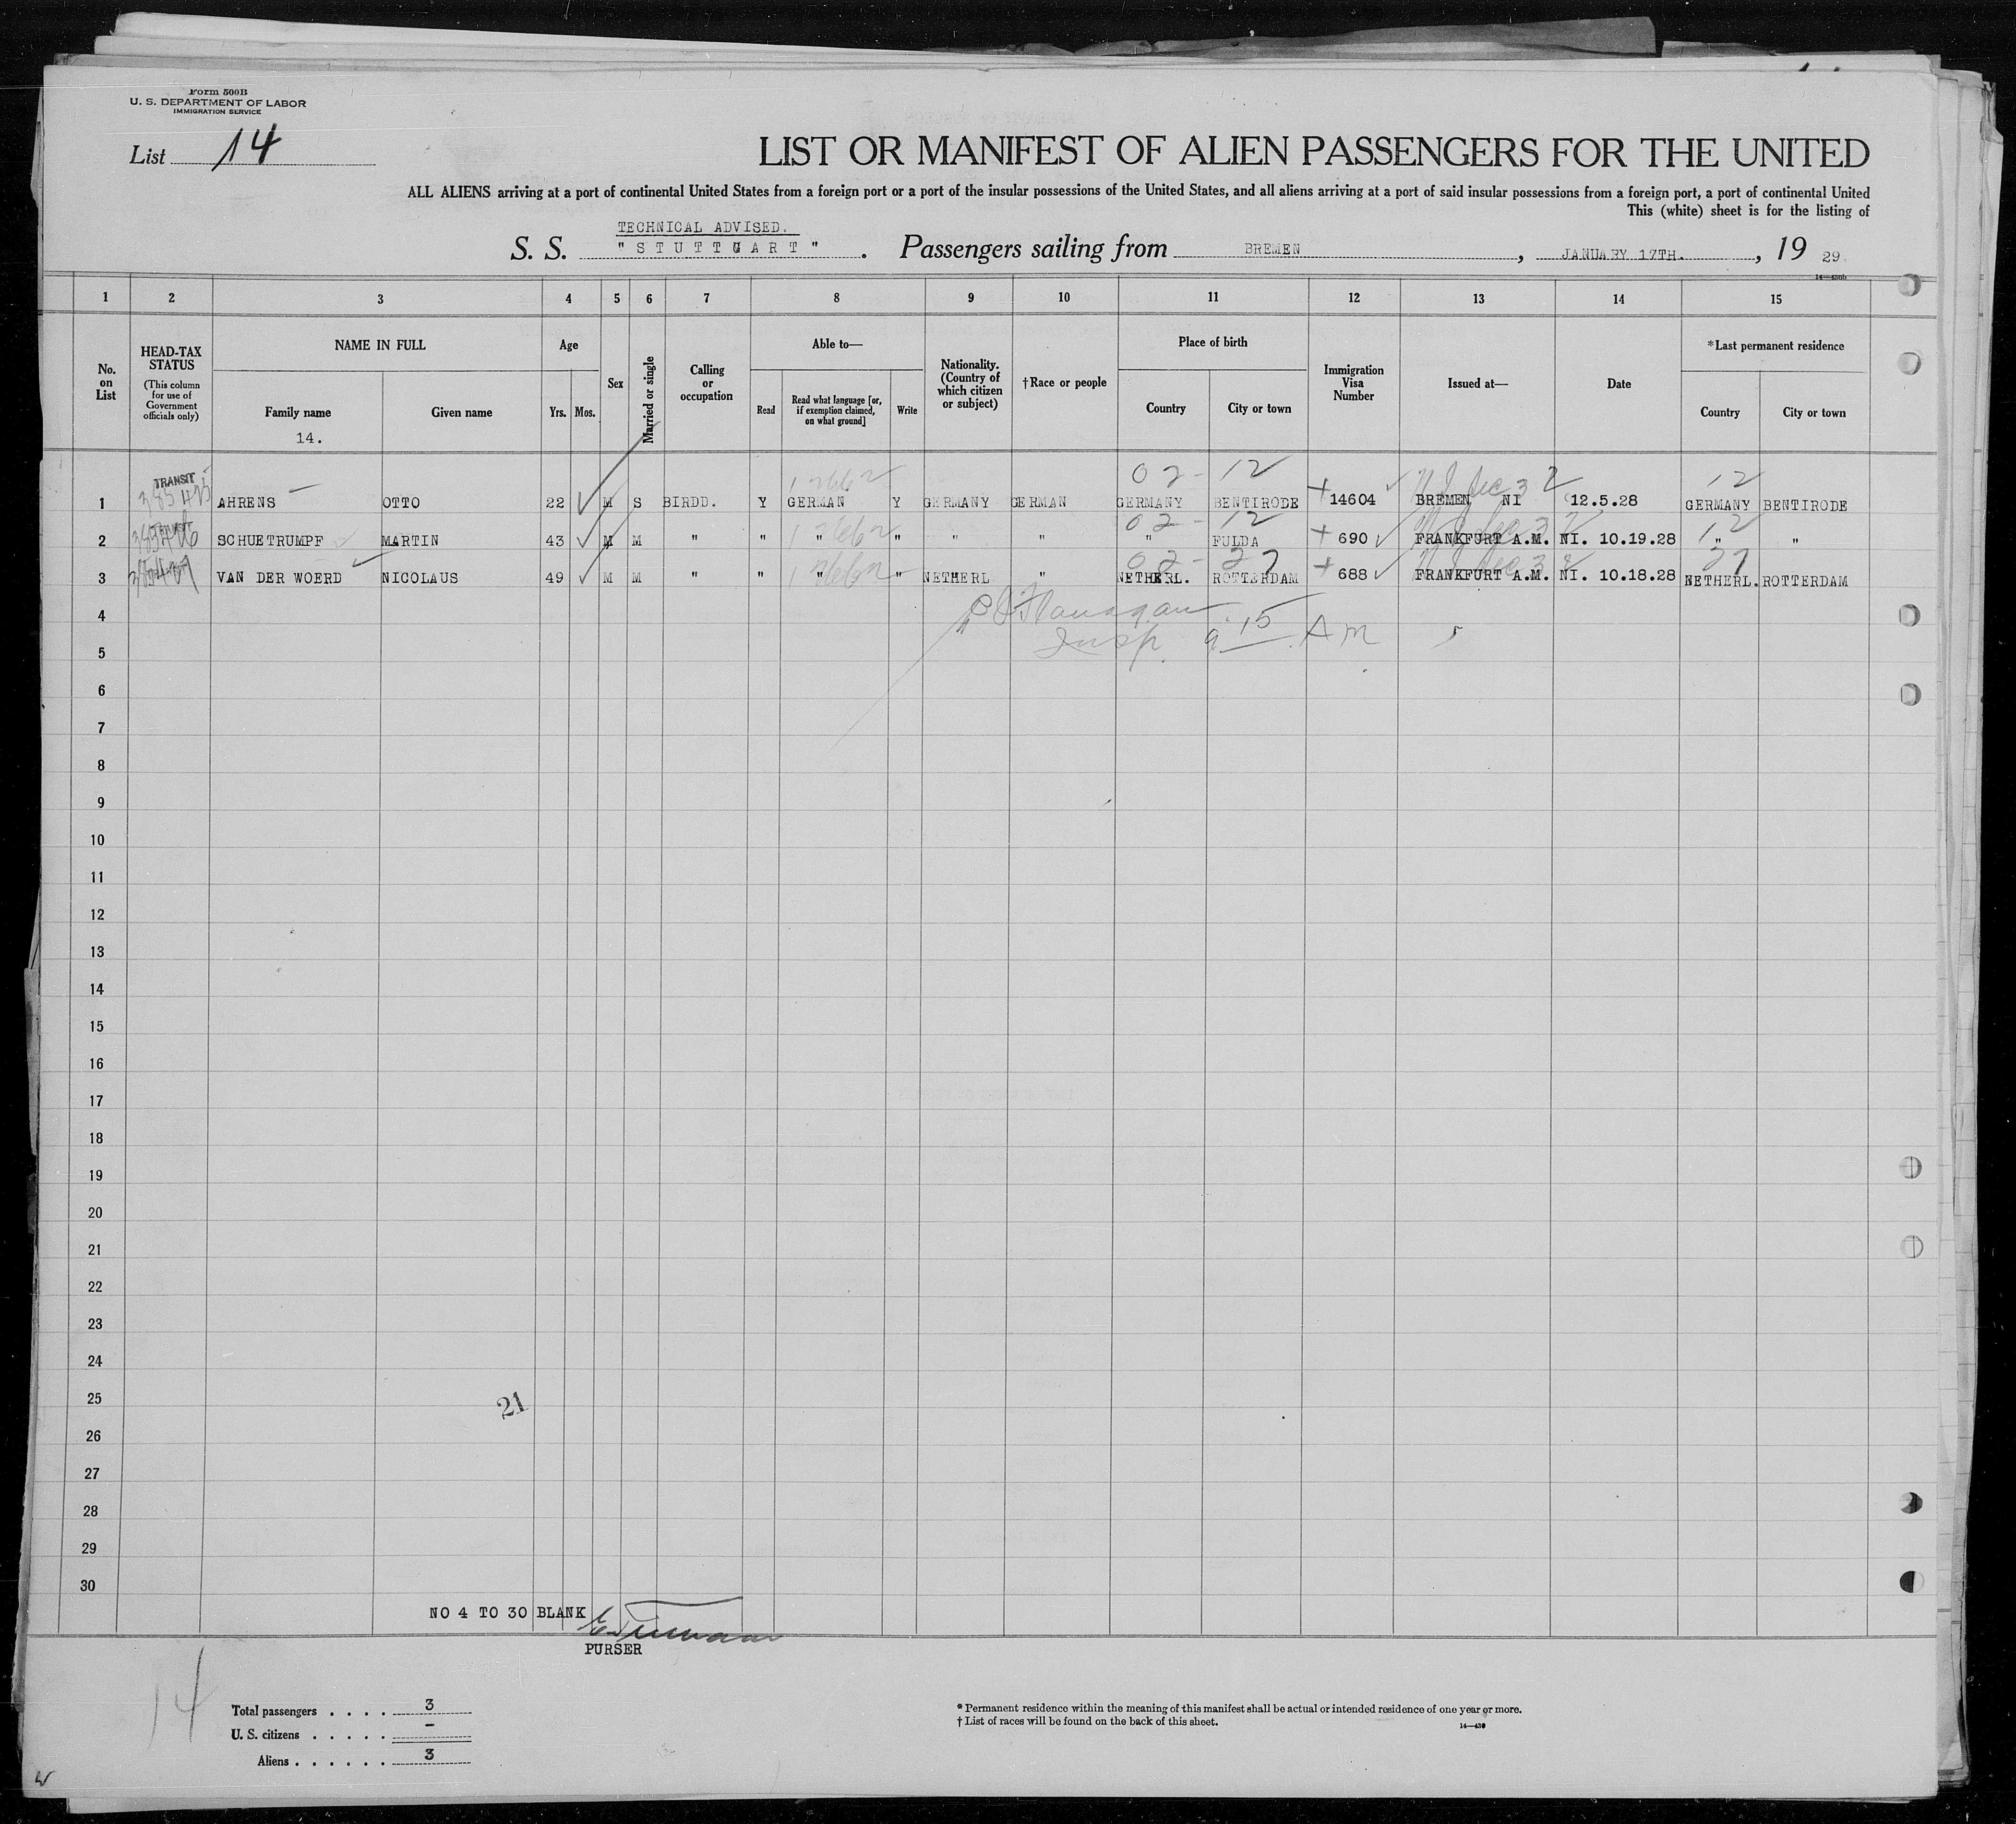 Form 500B
U. S. DEPARTMENT OF LABOR
IMMIGRATION SERVICE
List 14
LIST OR MANIFEST OF ALIEN PASSENGERS FOR THE UNITED
ALL ALIENS arriving at a port of continental United States from a foreign port or a port of the insular possessions of the United States, and all aliens arriving at a port of said insular possessions from a foreign port, a port of continental United
This (white) sheet is for the listing of
TECHNICAL ADVISED.
S. S. "STUTTGART". Passengers sailing from BREMEN, JANUARY 17TH., 19 29.
14—430b
1 2 3 4 5 6 7 8 9 10 11 12 13 14 15
No. on List
HEAD-TAX STATUS
(This column for use of Government officials only)
NAME IN FULL
Family name
Given name
14.
Age
Yrs. Mos.
Sex
Married or single
Calling or occupation
Able to—
Read
Read what language [or, if exemption claimed, on what ground]
Write
Nationality. (Country of which citizen or subject)
†Race or people
Place of birth
Country
City or town
Immigration Visa Number
Issued at—
Date
*Last permanent residence
Country
City or town
TRANSIT 02 - 12 12
1 AHRENS OTTO 22 M S BIRDD. Y GERMAN Y GERMANY GERMAN GERMANY BENTIRODE 14604 BREMEN NI 12.5.28 GERMANY BENTIRODE
02 - 12 12
2 SCHUETRUMPF MARTIN 43 M M " " " " " " " FULDA 690 FRANKFURT A.M. NI. 10.19.28 " "
02 - 27 27
3 VAN DER WOERD NICOLAUS 49 M M " " " " NETHERL " NETHERL. ROTTERDAM 688 FRANKFURT A.M. NI. 10.18.28 NETHERL. ROTTERDAM
4
Flanagan
5
Insp. 9:15 AM
6
7
8
9
10
11
12
13
14
15
16
17
18
19
20
21
22
23
24
25
21
26
27
28
29
30
NO 4 TO 30 BLANK
PURSER
14
Total passengers . . . . 3
U. S. citizens . . . . . –
Aliens . . . . . . 3
* Permanent residence within the meaning of this manifest shall be actual or intended residence of one year or more.
† List of races will be found on the back of this sheet.
14—430